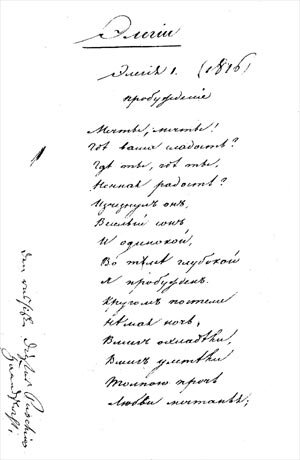 Элегіи
Элегія 1. (1816)
пробужденіе
Мечты, мечты!
Гдѣ ваша сладость?
Гдѣ ты, гдѣ ты,
Ночная радость?
Изчезнулъ онъ,
Веселый сонъ,
И одинокой,
Во тьмѣ глубокой
Я пробужденъ.
Кругомъ постели
Нѣмая ночь,
Вмигъ охладѣли,
Вмигъ улетѣли
Толпою прочь
Любви мечтанья;
Des russischen Dichters Puschkin
Handschrift.